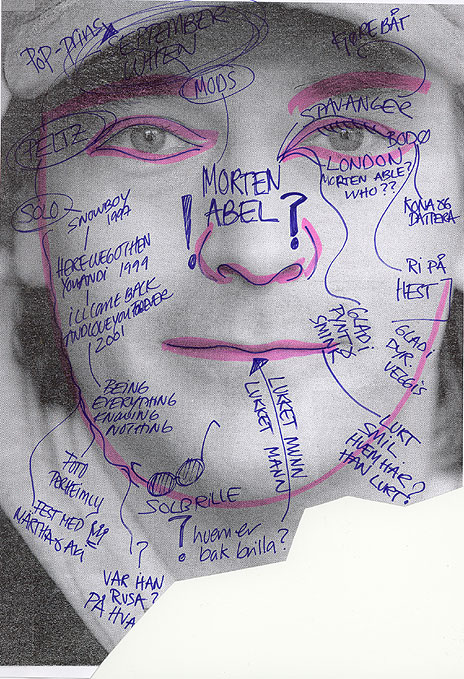 POP-PRINS
SEPTEMBER
WHEN
KJØRE BÅT
MODS
PELTZ
STAVANGER
BODØ
LONDON
MORTEN ABLE?
WHO??
MORTEN
ABEL
! ?
KONA OG
DATTERA
SOLO
SNOWBOY
1997
HERE WE GO THEN
YOU AND I 1999
I'LL COME BACK
AND LOVE YOU FOREVER
2001
BEING
EVERYTHING
KNOWING
NOTHING
RI PÅ
HEST
GLAD I
PYNT &
SMINK
GLAD I
DYR
VEGGIS
LUKKET MUNN
LUKKET MANN
LURT
SMIL
HVEM HAR
HAN LURT?
SOLBRILLE
? hvem er
bak brilla?
FOTO
FEST MED
MÄRTHA & ARI
?
VAR HAN
RUSA?
PÅ HVA